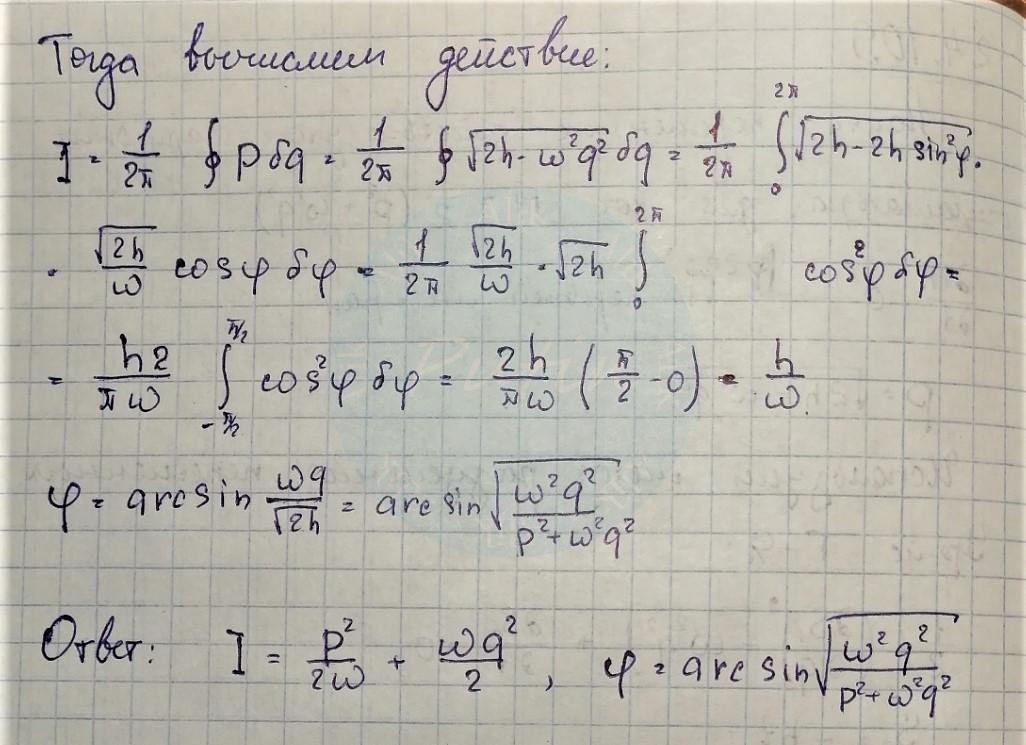 Тогда вычислим действие:
I = 1/2π ∮ p δq = 1/2π ∮ √(2h - ω²q²) δq = 1/2π ∫₀^2π √(2h - 2h sin²φ) ·
· √(2h)/ω cosφ δφ = 1/2π √(2h)/ω · √(2h) ∫₀^2π cos²φ δφ =
= h2/πω ∫_{-π/2}^{π/2} cos²φ δφ = 2h/πω (π/2 - 0) = h/ω.
φ = arcsin ωq/√(2h) = arcsin √(ω²q²/(p²+ω²q²))
Ответ: I = p²/2ω + ωq²/2, φ = arcsin √(ω²q²/(p²+ω²q²))